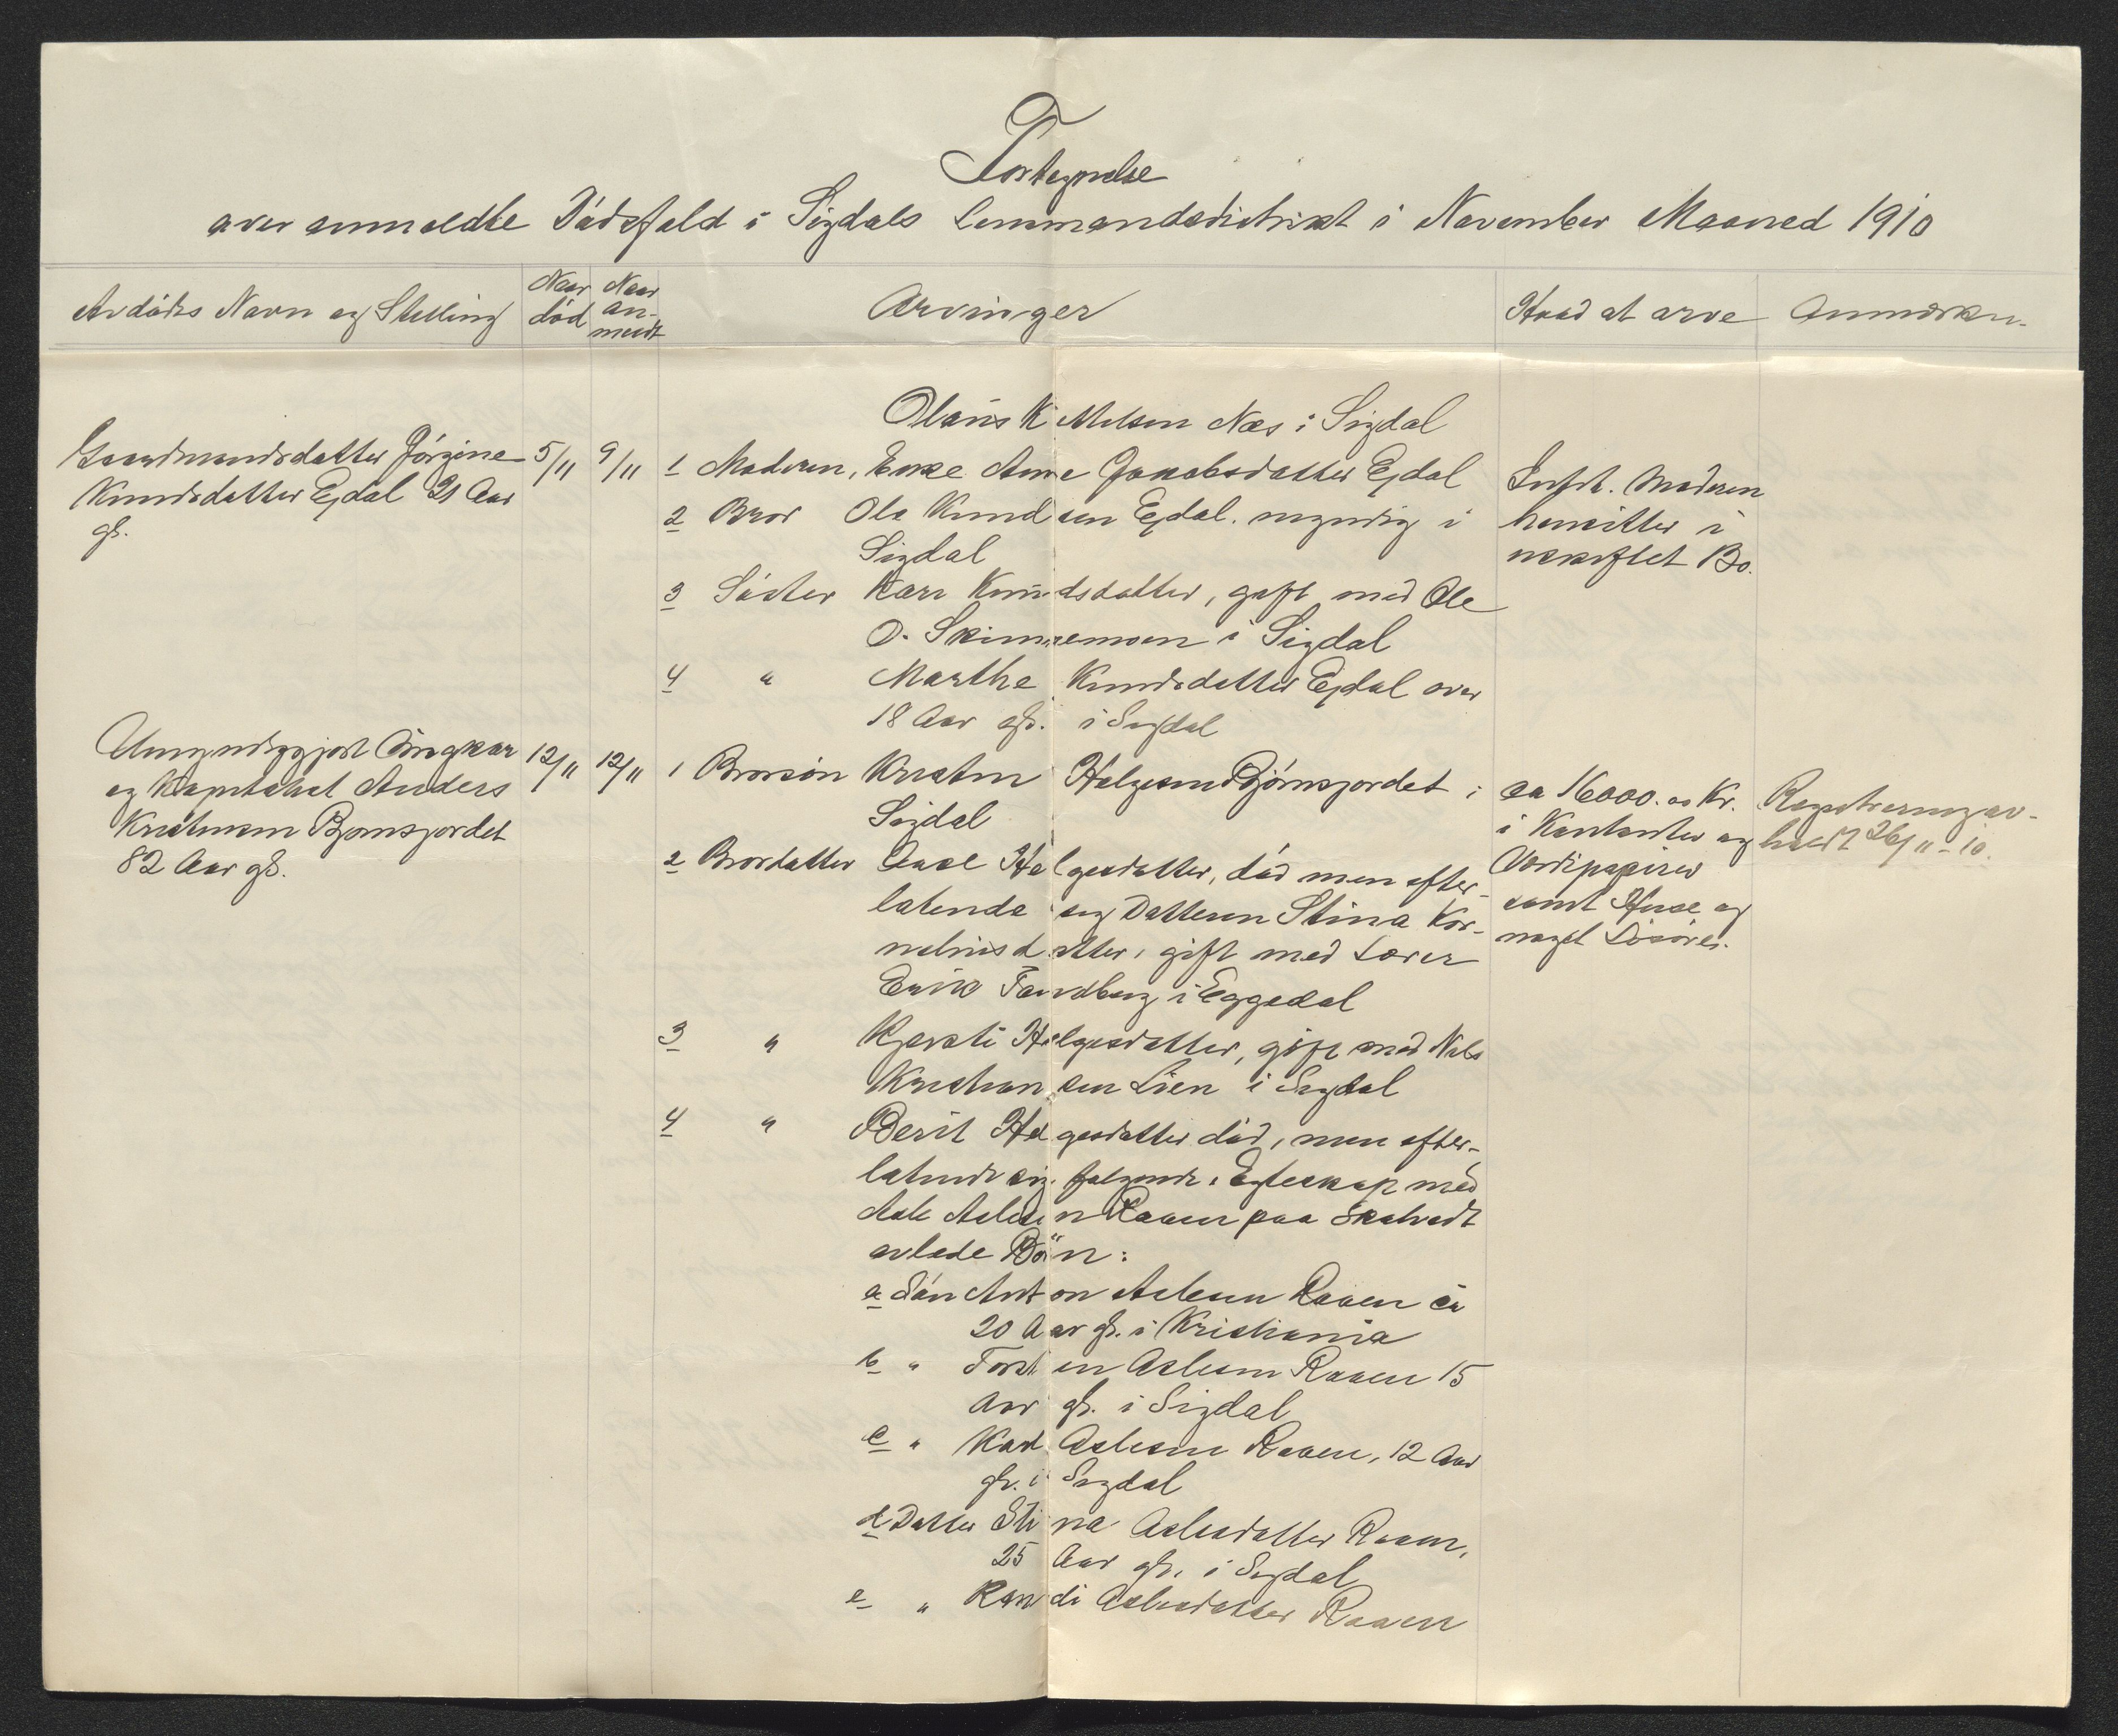 Fortegnelse
over anmeldte Dödsfald i Sigdals Lensmandsdistrikt i November Maaned 1910
Avdödes Navn og Stilling
Naar död
Naar an-
meldt
Arvinger
Hvad at arve
Anmerkn.
Gaardmandsdatter Jörgine
Knudsdatter Ejdal 21 Aar
gl.
5/11
9/11
Olaus K Melsen Næs i Sigdal
1 Moderen, Enke Anne Jakobsdatter Ejdal
2 Bror Ole Knudsen Ejdal. myndig i
Sigdal
3 Söster Kari Knudsdatter, gift med Ole
O. Skinnemoen i Sigdal
4 " Marthe Knudsdatter Ejdal over
18 Aar gl. i Sigdal
Intet. Moderen
hensitter i
uskiftet Bo.
Umyndiggjort Ungkar
og Kapitalist Anders
Kristensen Bjornsjordet
82 Aar gl.
12/11
12/11
1 Brorsön Kristen Helgesen Björnsjordet i
Sigdal
2 Brordatter Aase Helgesdatter, död men efter-
latende sig Datteren Stina Kor-
neliusdatter, gift med Lærer
Erik Tandberg i Eggedal
3 " Kjersti Helgesdatter, gift med Nels
Kristiansen Lien i Sigdal
4 " Berit Helgesdatter död, men efter-
latende sig følgende i Egteskap med
Asle Aslesen Raaen paa Skalvedt
avlede Börn:
a Sön Anton Aslesen Raaen ca
20 Aar gl. i Kristiania
b " Torsten Aslesen Raaen 15
Aar gl. i Sigdal
c " Karl Aslesen Raaen, 12 Aar
gl. i Sigdal
d Datter Stina Aslesdatter Raaen,
25 Aar gl. i Sigdal
e " Randi Aslesdatter Raaen
ca 16000.00 Kr.
i Kontanter og
Værdipapirer
samt Huse og
noget Lösöre.
Registrering av-
holdt 26/11-10.